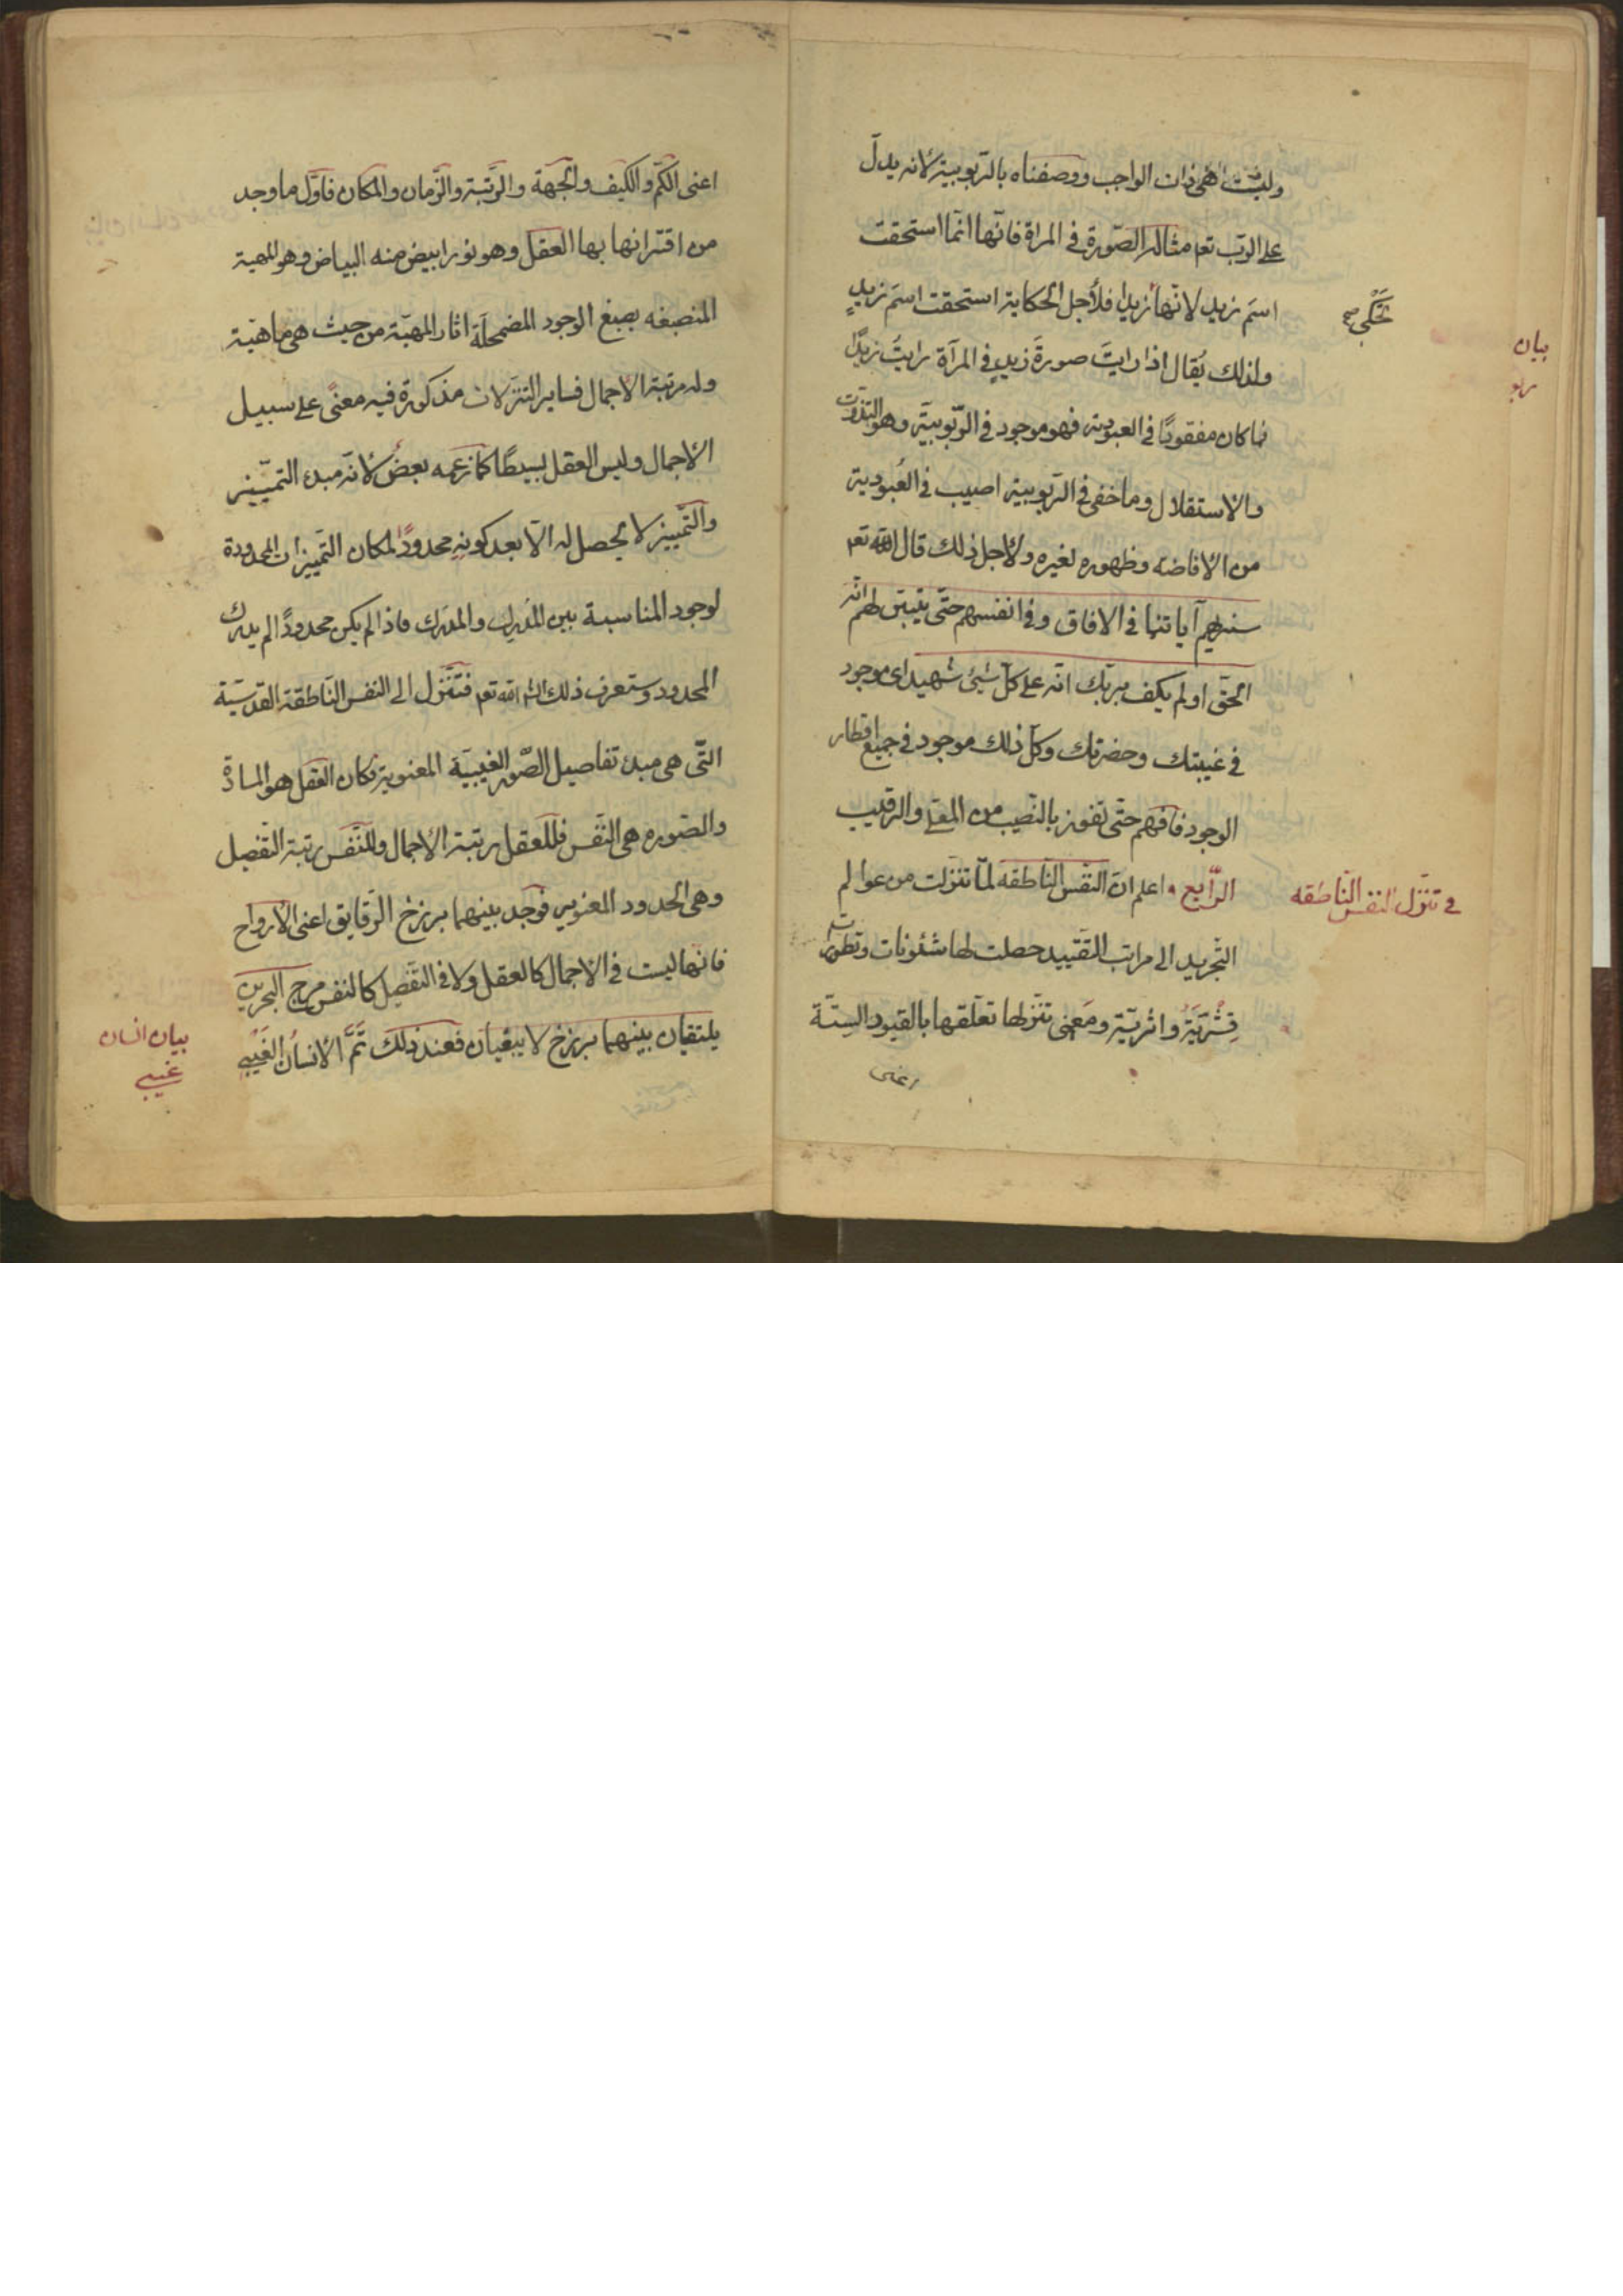 وليست هي ذات الواجب ووصفناه بالربوبية لانه يدلّ
على الرّب تعه مثاله الصّورة في المراة فانّها انّما استحقت
اسمَ زيد لانّها زيدا فلأجل الحكاية استحقت اسمَ زيدٍ
تَحْكي صح
ولذلك يُقال اذا رايتَ صورةَ زيدٍ في المرآة رايتُ زيدًا
بيان
ربو
فما كان مفقودًا في العبودية فهو موجود في الرّبوبيّة وهو التذوّت
والاستقلال وما خفى في الربوبية اصيب في العُبودية
من الافاضه وظهوره لغيره ولاجل ذلك قال الله تعه
سنريهم آياتنا في الافاق وفي انفسهم حتّى يتبيّن لهم انّه
الحقّ اولم يكف بربّك انّه على كلّ شيئ شهيد اى موجود
في غيبتك وحضرتك وكلّ ذلك موجود في جميع اقطار
الوجود فافهم حتّى تفوز بالنّصيب من المعلّى والرقيب
الرّابع اعلم انّ النّفس النّاطقه لمّا تنزّلت من عوالم
في تنزّل النفس النّاطقه
التّجريد الى مراتب التّقييد حصلت لها شئونات وتطورات
قِشْريّةٌ واثريّة ومَعنى تنزّلها تعلّقها بالقيود السِتّة
اعنى
اعنى الكمّ والكيف والجهة والرّتبة والزّمان والمكان فاوّل ما وجد
من اقترانها بها العقل وهو نور ابيض منه البياض وهو المهية
المنصبغه بصبغ الوجود المضمحلّة اثار المهيّة من حيث هي ماهيّة
وله مرتبة الاجمال فساير التنزّلات مذكورة فيه معنًى على سبيل
الاجمال وليس العقل بسيطًا كما زعمه بعضٌ لانّه مبدء التّمييز
والتّمييز لا يحصل له الّا بعد كونه محدودًا لمكان التّمييزات المحدودة
لوجود المناسبة بين المُدرِك والمدرَك فاذا لم يكن محدودًا لم يدرك
المحدود وستعرف ذلك انشاء الله تعه فتنزّل الى النفس النّاطقة القدسيّة
التّي هي مبدء تفاصيل الصّور الغيبيّة المعنوية فكان العقل هو المادّة
والصّوره هي النّفس فللعقل رتبة الاجمال وللنّفس رتبة التّفصيل
وهي الحدود المعنويه فوجد بينهما برزخ الرّقايق اعنى الارواح
فانّها ليست في الاجمال كالعقل ولا في التّفصيل كالنفس مرج البحرين
يلتقيان بينهما برزخ لا يبغيان فعند ذلك تَمَّ الانسانُ الغَيْبى
بيان انسان
غيبى